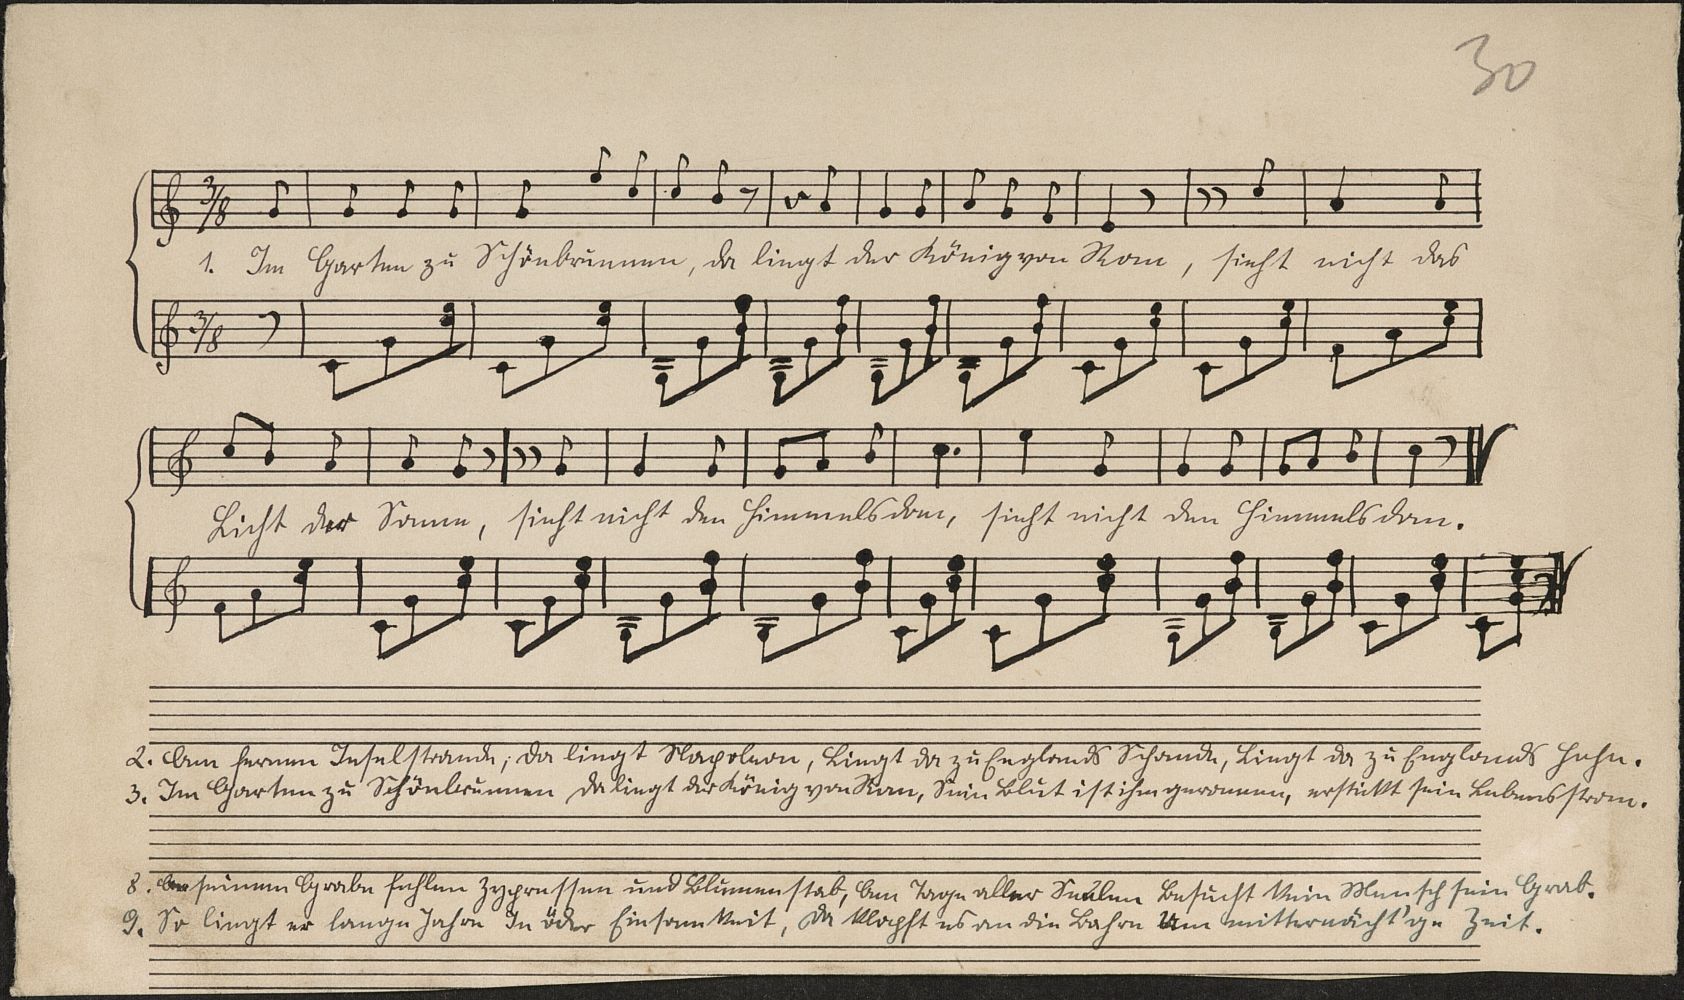 30
3/8
1. Im Garten zu Schönbrunnen, da liegt der König von Rom, sieht nicht das
3/8
Licht der Sonne, sieht nicht den Himmelsdom, sieht nicht den Himmelsdom.
2. Am fernen Inselstrande, da liegt Napoleon, Liegt da zu Englands Schande, Liegt da zu Englands Hohn.
3. Im Garten zu Schönbrunnen da liegt der König von Rom, Sein Blut ist ihm geronnen, erstickt sein Lebensstrom.
8. An seinem Grabe fehlen Zypressen und Blumenstab, Am Tage aller Seelen Besucht kein Mensch sein Grab.
9. So liegt er lange Jahre In öder Einsamkeit, Da klopft es an die Bahre Um mitternächt'ge Zeit.